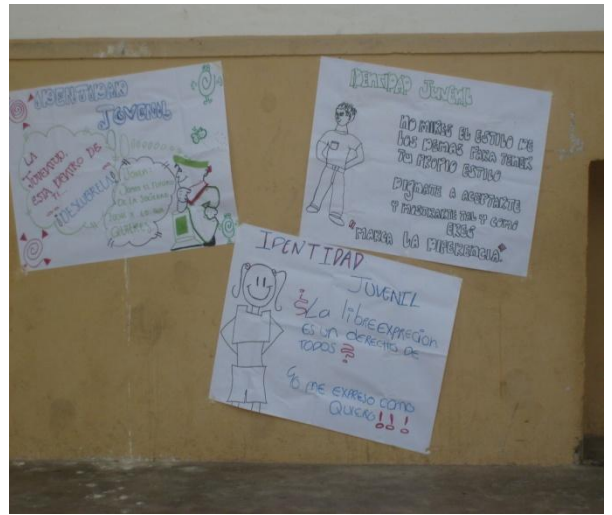 IDENTIDAD
JUVENIL
LA
JUVENTUD
ESTA DENTRO DE
¡DESCUBRELA!
JOVEN!
DE LA SOCIEDAD
IDENTIDAD JUVENIL
NO MIRES EL ESTILO DE
LOS DEMAS PARA TENER
TU PROPIO ESTILO
DIGNATE A ACEPTARTE
Y MOSTRARTE TAL Y COMO
ERES
"MARCA LA DIFERENCIA"
IDENTIDAD
JUVENIL
¿La libre EXPRECION
ES UN DERECHO DE
TODOS?
YO ME EXPREJO COMO
QUIERO!!!